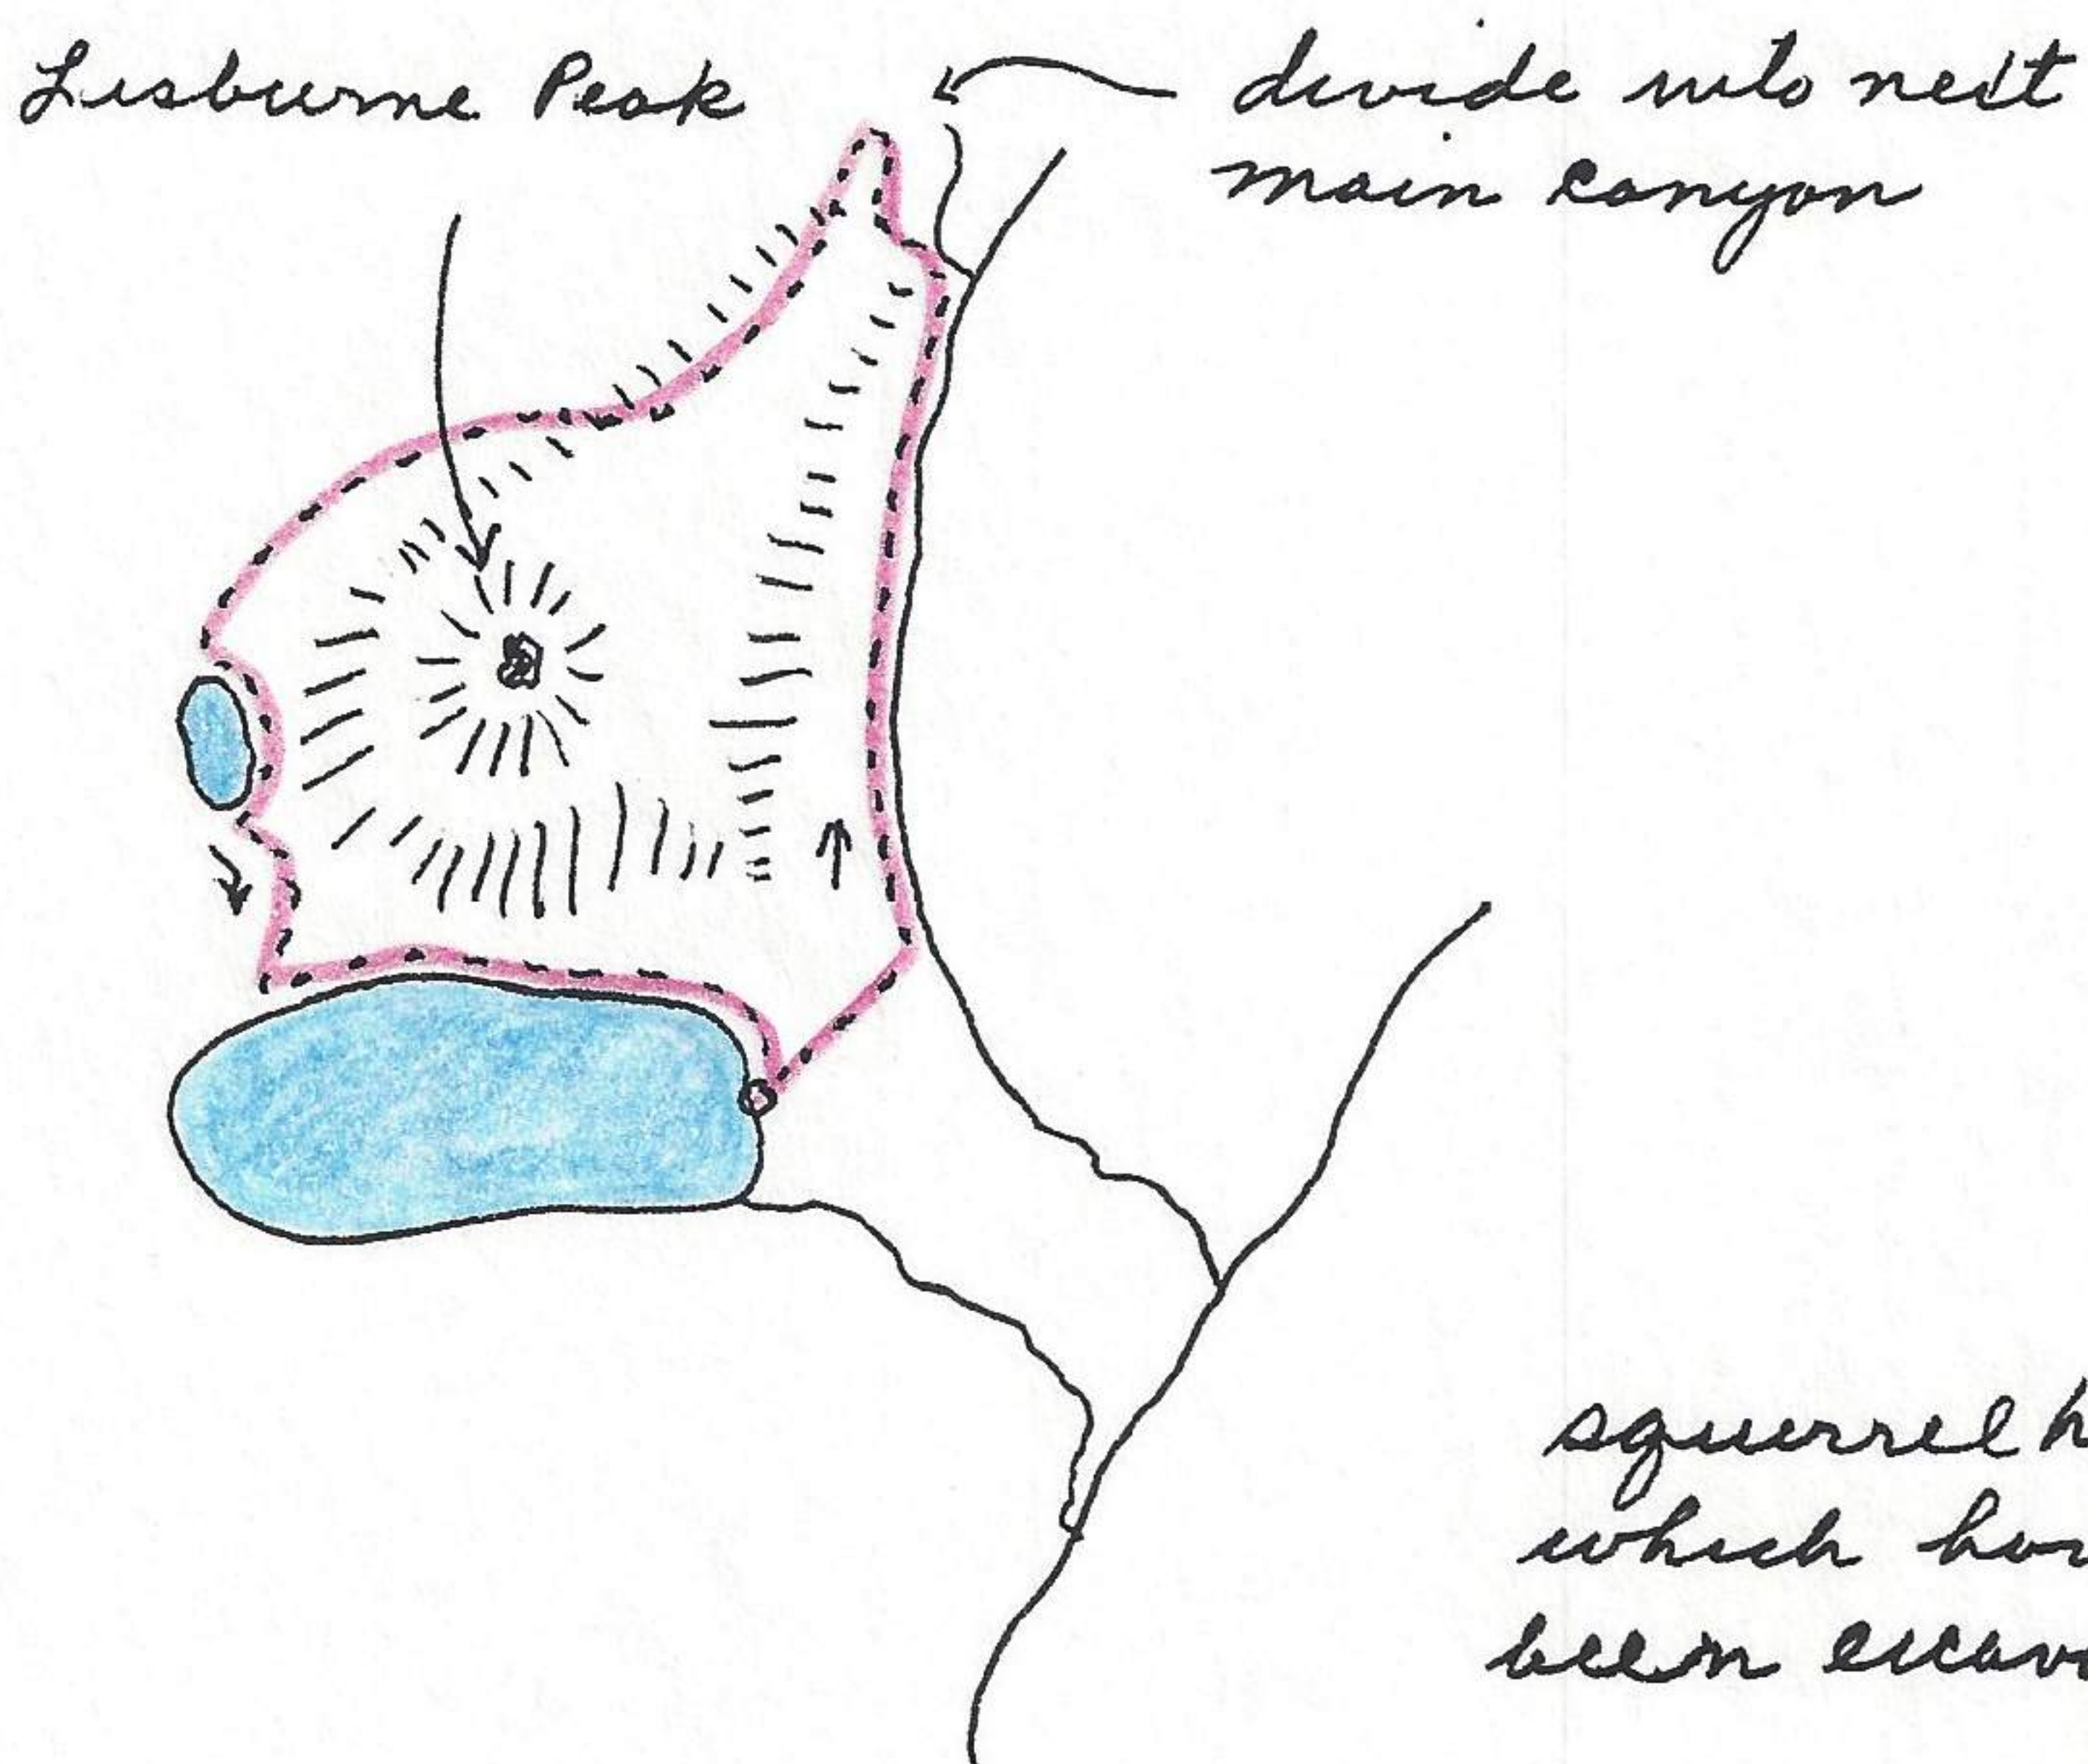 Lisburne Peak
divide into next
main canyon
squirrel h
which hav
been excava